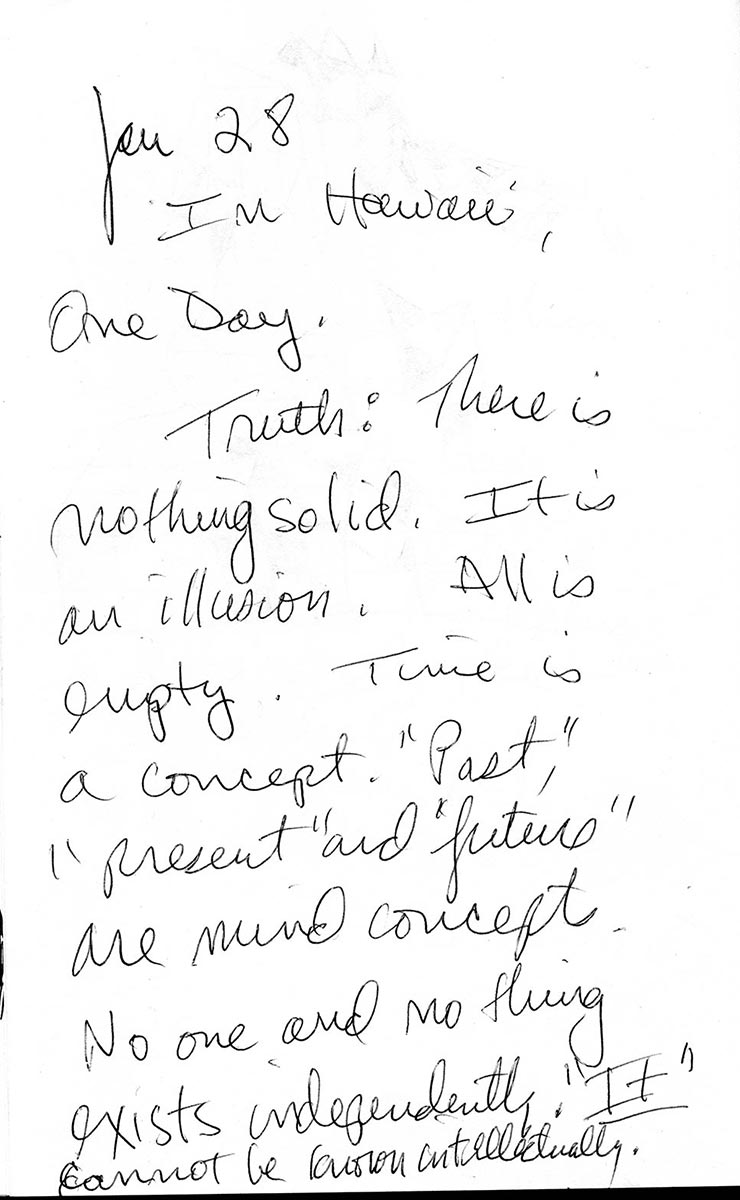 Jan 28
In Hawaii,
One Day.
Truth: There is
nothing solid. It is
an illusion. All is
empty. Time is
a concept. "Past,"
"present" and "future"
are mind concept.
No one and no thing
exists independently. "It"
cannot be known intellectually.